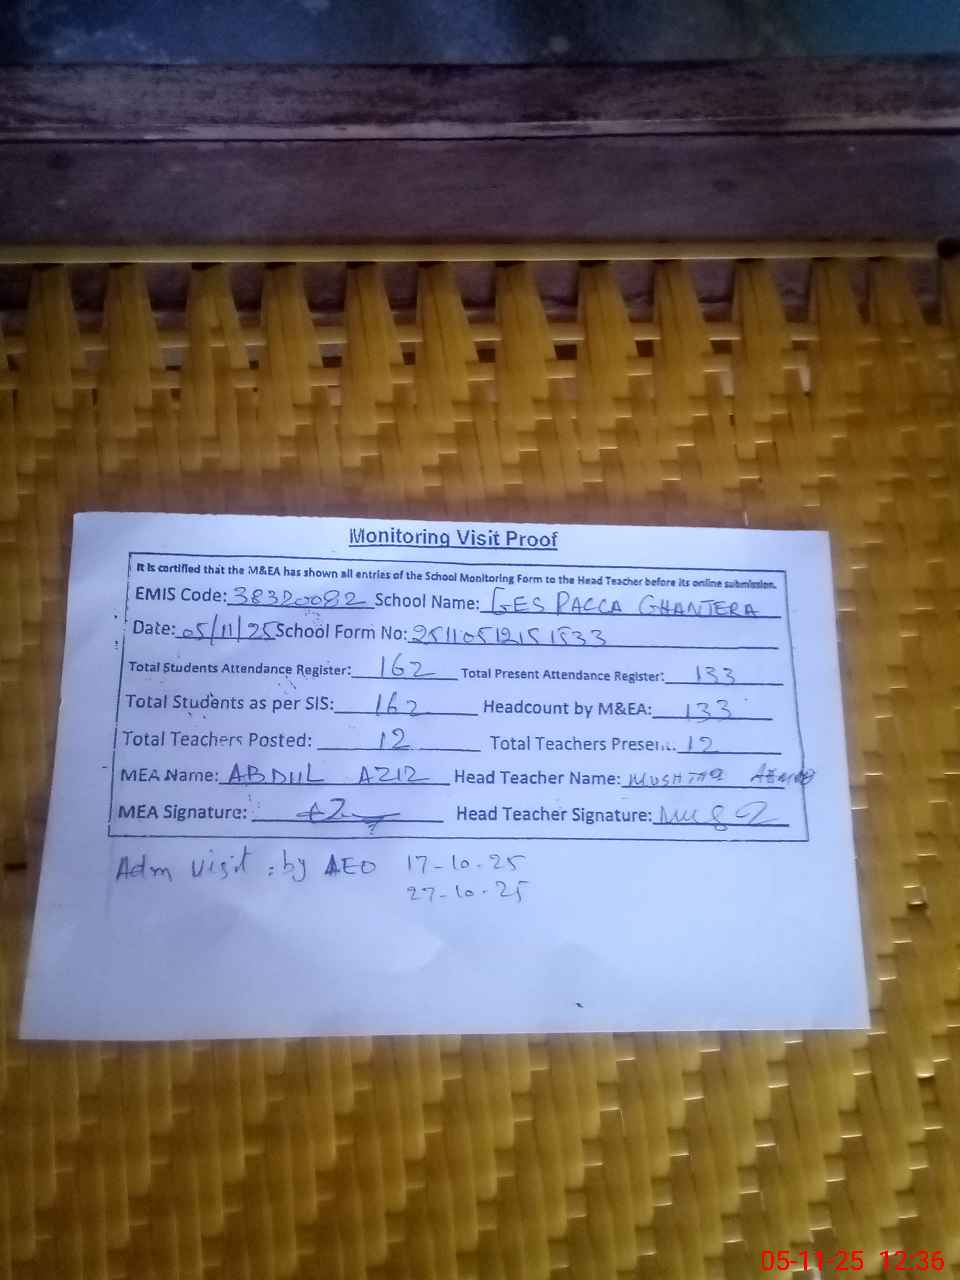 Monitoring Visit Proof
It is certified that the M&EA has shown all entries of the School Monitoring Form to the Head Teacher before its online submission.
EMIS Code: 38320082 School Name: GES PACCA GHANJERA
Date: 05/11/25 School Form No: 
Total Students Attendance Register: 162 Total Present Attendance Register: 133
Total Students as per SIS: 162 Headcount by M&EA: 133
Total Teachers Posted: 12 Total Teachers Present: 12
MEA Name: ABDUL AZIZ Head Teacher Name: MUSHTAQ AHMAD
MEA Signature: Head Teacher Signature:
Adm visit : by AEO 17-10-25
27-10-25
05-11-25 12:36